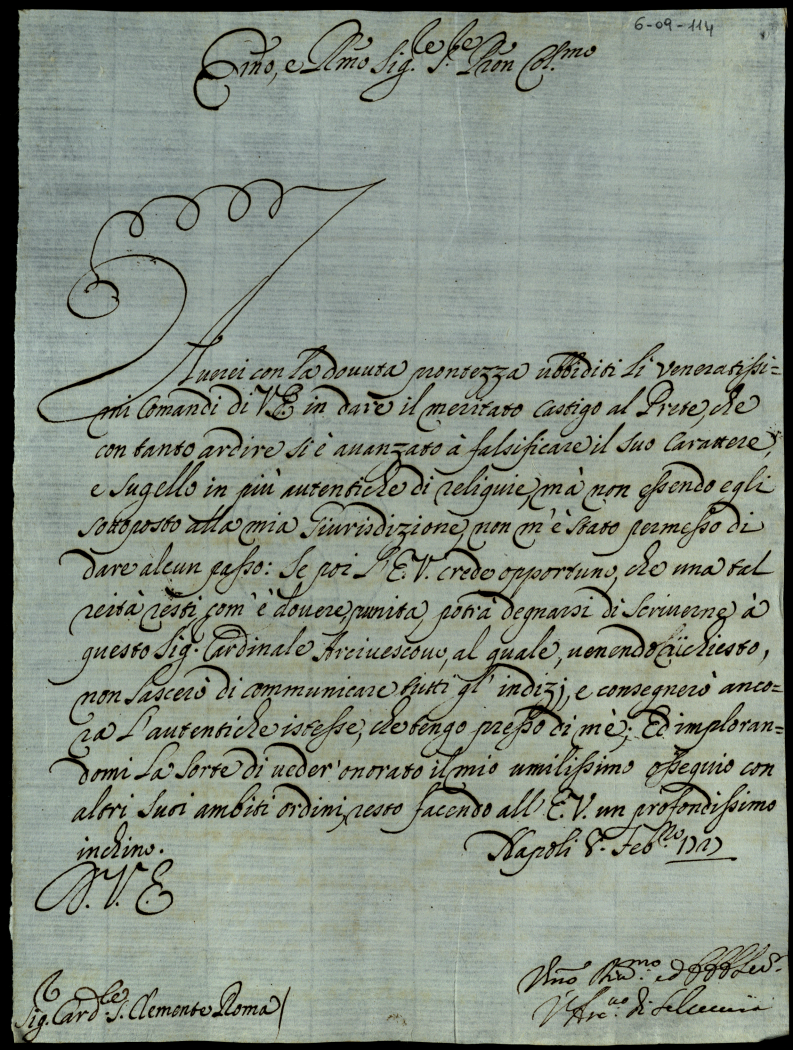 6-09-114
Emo, e Rmo Sig.re S.re Pron Col.mo
Auerei con la douuta prontezza ubbiditi li veneratissi=
mi Comandi di V.E. in dare il meritato Castigo al Prete, che
con tanto ardire si è auanzato à falsificare il suo Carattere,
e Sugello in più autentiche di reliquie, mà non essendo egli
sottoposto alla mia Giurisdizione, non m'è stato permesso di
dare alcun passo: Se poi l'E.V. crede opportuno, che una tal
reità resti, com'è douere, punita, potrà degnarsi di scriverne à
questo Sig.r Cardinale Arciuescouo, al quale, uenendo richiesto,
non lascerò di communicare tutti gl'indizj, e consegnerò anco=
ra l'autentiche istesse, che tengo presso di mè; Ed imploran=
domi la sorte di ueder'onorato il mio umilissimo ossequio con
altri suoi ambiti ordini, resto facendo all'E.V. un profondissimo
inchino.
Napoli 8. Feb.ro 1727
D. V. E.
Vmo Diu.mo ed Seru.r
V Arc.uo di Seleucia
Sig. Card.le S. Clemente Roma